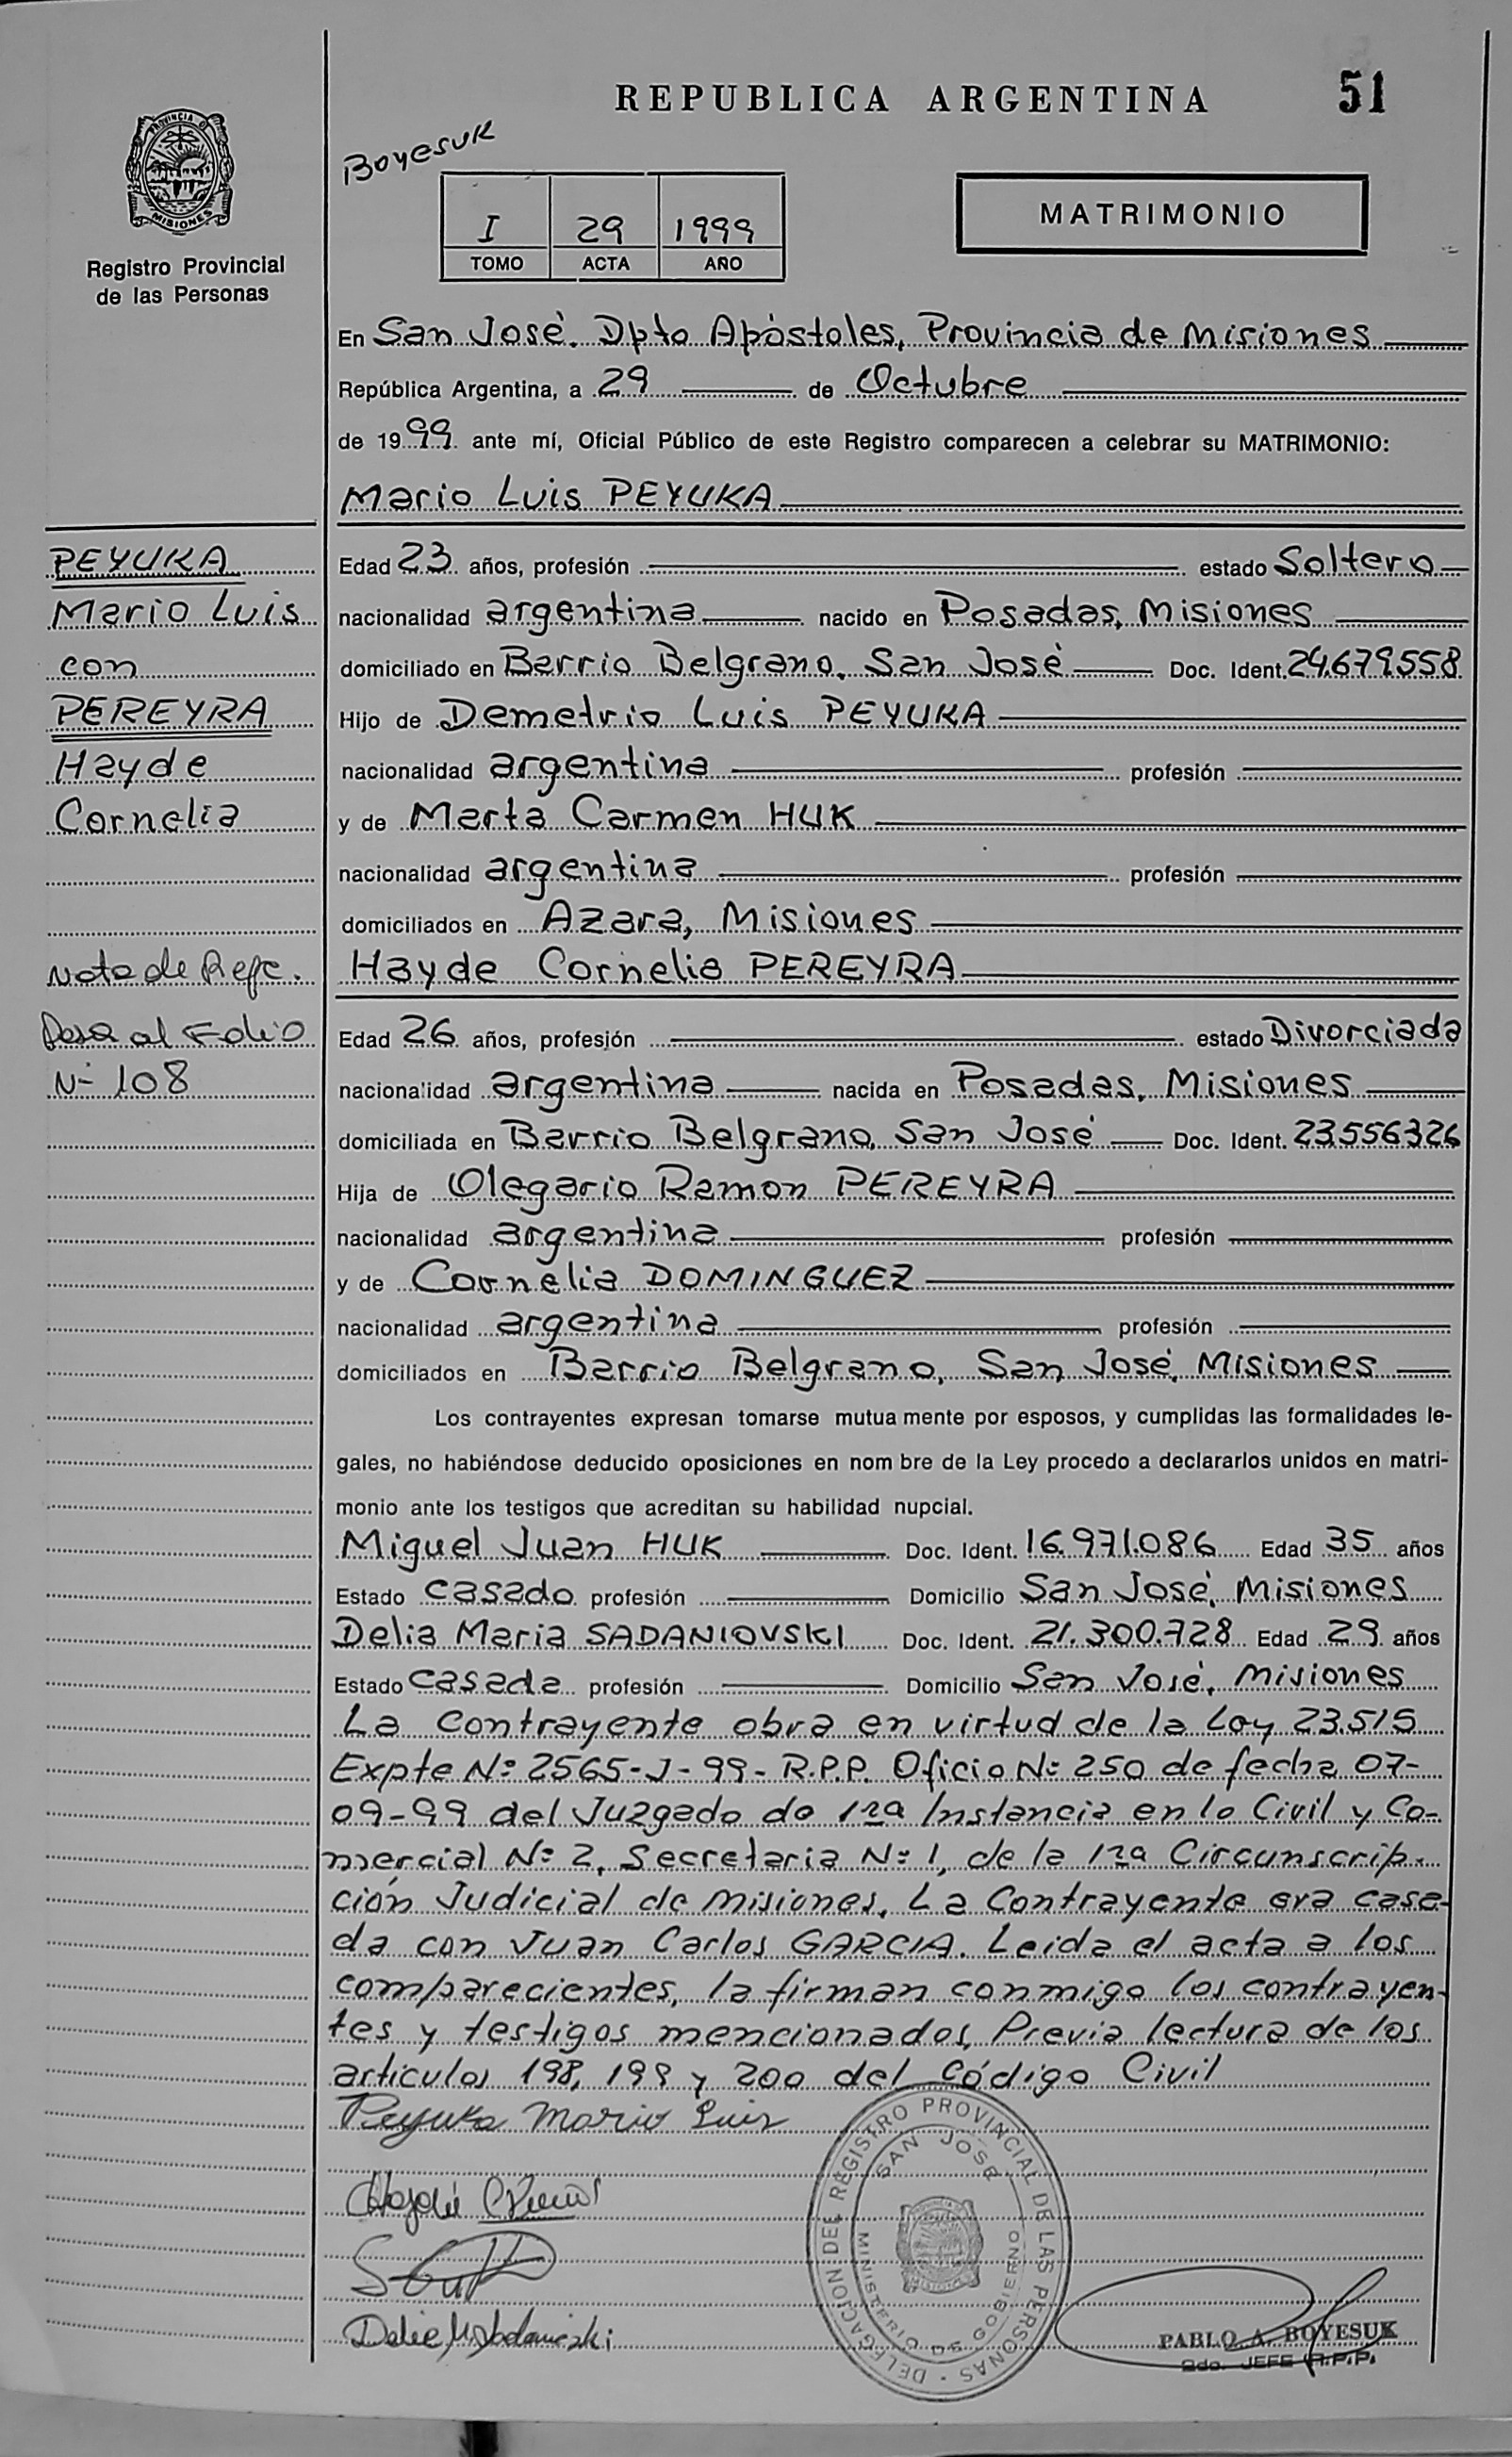 REPUBLICA ARGENTINA
51
PROVINCIA D
MISIONES
Registro Provincial
de las Personas
Boyesuk
I 29 1999
TOMO ACTA AÑO
MATRIMONIO
En San José. Dpto Apóstoles, Provincia de Misiones
República Argentina, a 29 de Octubre
de 1999 ante mí, Oficial Público de este Registro comparecen a celebrar su MATRIMONIO:
Mario Luis PEYUKA
PEYUKA
Mario Luis
con
PEREYRA
Hayde
Cornelia
Nota de Refe.
Pasa al Folio
Nº 108
Edad 23 años, profesión estado Soltero
nacionalidad argentina nacido en Posadas, Misiones
domiciliado en Barrio Belgrano, San José Doc. Ident. 24.679.558
Hijo de Demetrio Luis PEYUKA
nacionalidad argentina profesión
y de Marta Carmen HUK
nacionalidad argentina profesión
domiciliados en Azara, Misiones
Hayde Cornelia PEREYRA
Edad 26 años, profesión estado Divorciada
nacionalidad argentina nacida en Posadas, Misiones
domiciliada en Barrio Belgrano, San José Doc. Ident. 23.556.326
Hija de Olegario Ramon PEREYRA
nacionalidad argentina profesión
y de Cornelia DOMINGUEZ
nacionalidad argentina profesión
domiciliados en Barrio Belgrano, San José, Misiones
Los contrayentes expresan tomarse mutua mente por esposos, y cumplidas las formalidades le-
gales, no habiéndose deducido oposiciones en nom bre de la Ley procedo a declararlos unidos en matri-
monio ante los testigos que acreditan su habilidad nupcial.
Miguel Juan HUK Doc. Ident. 16.971.086 Edad 35 años
Estado casado profesión Domicilio San José, Misiones
Delia Maria SADANIOVSKI Doc. Ident. 21.300.728 Edad 29 años
Estado casada profesión Domicilio San José, Misiones
La contrayente obra en virtud de la Ley 23.515
Expte Nº 2565-J-99-R.P.P. Oficio Nº 250 de fecha 07-
09-99 del Juzgado de 1ra Instancia en lo Civil y Co-
mercial Nº 2, Secretaria Nº 1, de la 1ra Circunscrip-
ción Judicial de Misiones, La Contrayente era casa-
da con Juan Carlos GARCIA. Leida el acta a los
comparecientes, la firman conmigo los contrayen-
tes y testigos mencionados, Previa lectura de los
articulos 198, 199 y 200 del Código Civil
Peyuka Mario Luis
DELEGACION DEL REGISTRO PROVINCIAL DE LAS PERSONAS
SAN JOSE
MINISTERIO DE GOBIERNO
PABLO A. BOYESUK
2do. JEFE R.P.P.